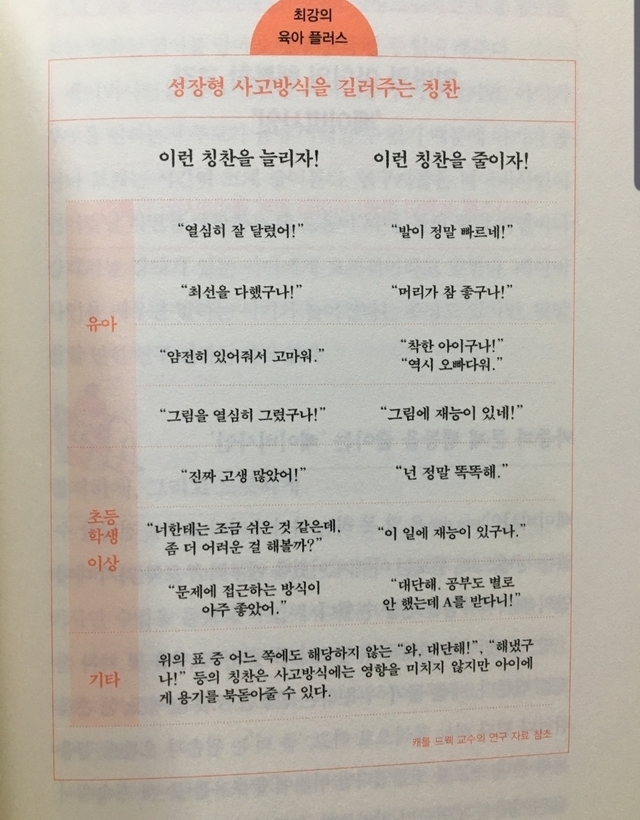 최강의
육아 플러스
성장형 사고방식을 길러주는 칭찬
이런 칭찬을 늘리자!
이런 칭찬을 줄이자!
유아
“열심히 잘 달렸어!”
“발이 정말 빠르네!”
“최선을 다했구나!”
“머리가 참 좋구나!”
“얌전히 있어줘서 고마워.”
“착한 아이구나!”
“역시 오빠다워.”
“그림을 열심히 그렸구나!”
“그림에 재능이 있네!”
초등
학생
이상
“진짜 고생 많았어!”
“넌 정말 똑똑해.”
“너한테는 조금 쉬운 것 같은데,
좀 더 어려운 걸 해볼까?”
“이 일에 재능이 있구나.”
“문제에 접근하는 방식이
아주 좋았어.”
“대단해. 공부도 별로
안 했는데 A를 받다니!”
기타
위의 표 중 어느 쪽에도 해당하지 않는 “와, 대단해!”, “해냈구
나!” 등의 칭찬은 사고방식에는 영향을 미치지 않지만 아이에
게 용기를 북돋아줄 수 있다.
캐롤 드웩 교수의 연구 자료 참조